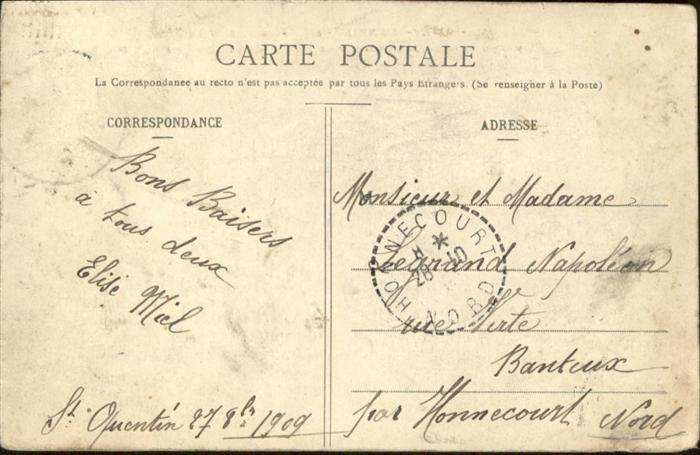 CARTE POSTALE
La Correspondance au recto n'est pas acceptée par tous les Pays Etrangers. (Se renseigner à la Poste)
CORRESPONDANCE
Bons Baisers
à tous deux
Elise Miel
St Quentin 27 8bre 1909
ADRESSE
Monsieur et Madame
Legrand Napoléon
rue Verte
Banteux
par Honnecourt Nord
HONNECOURT
NORD